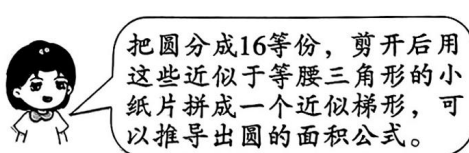 把圆分成16等份，剪开后用
这些近似于等腰三角形的小
纸片拼成一个近似梯形，可
以推导出圆的面积公式。